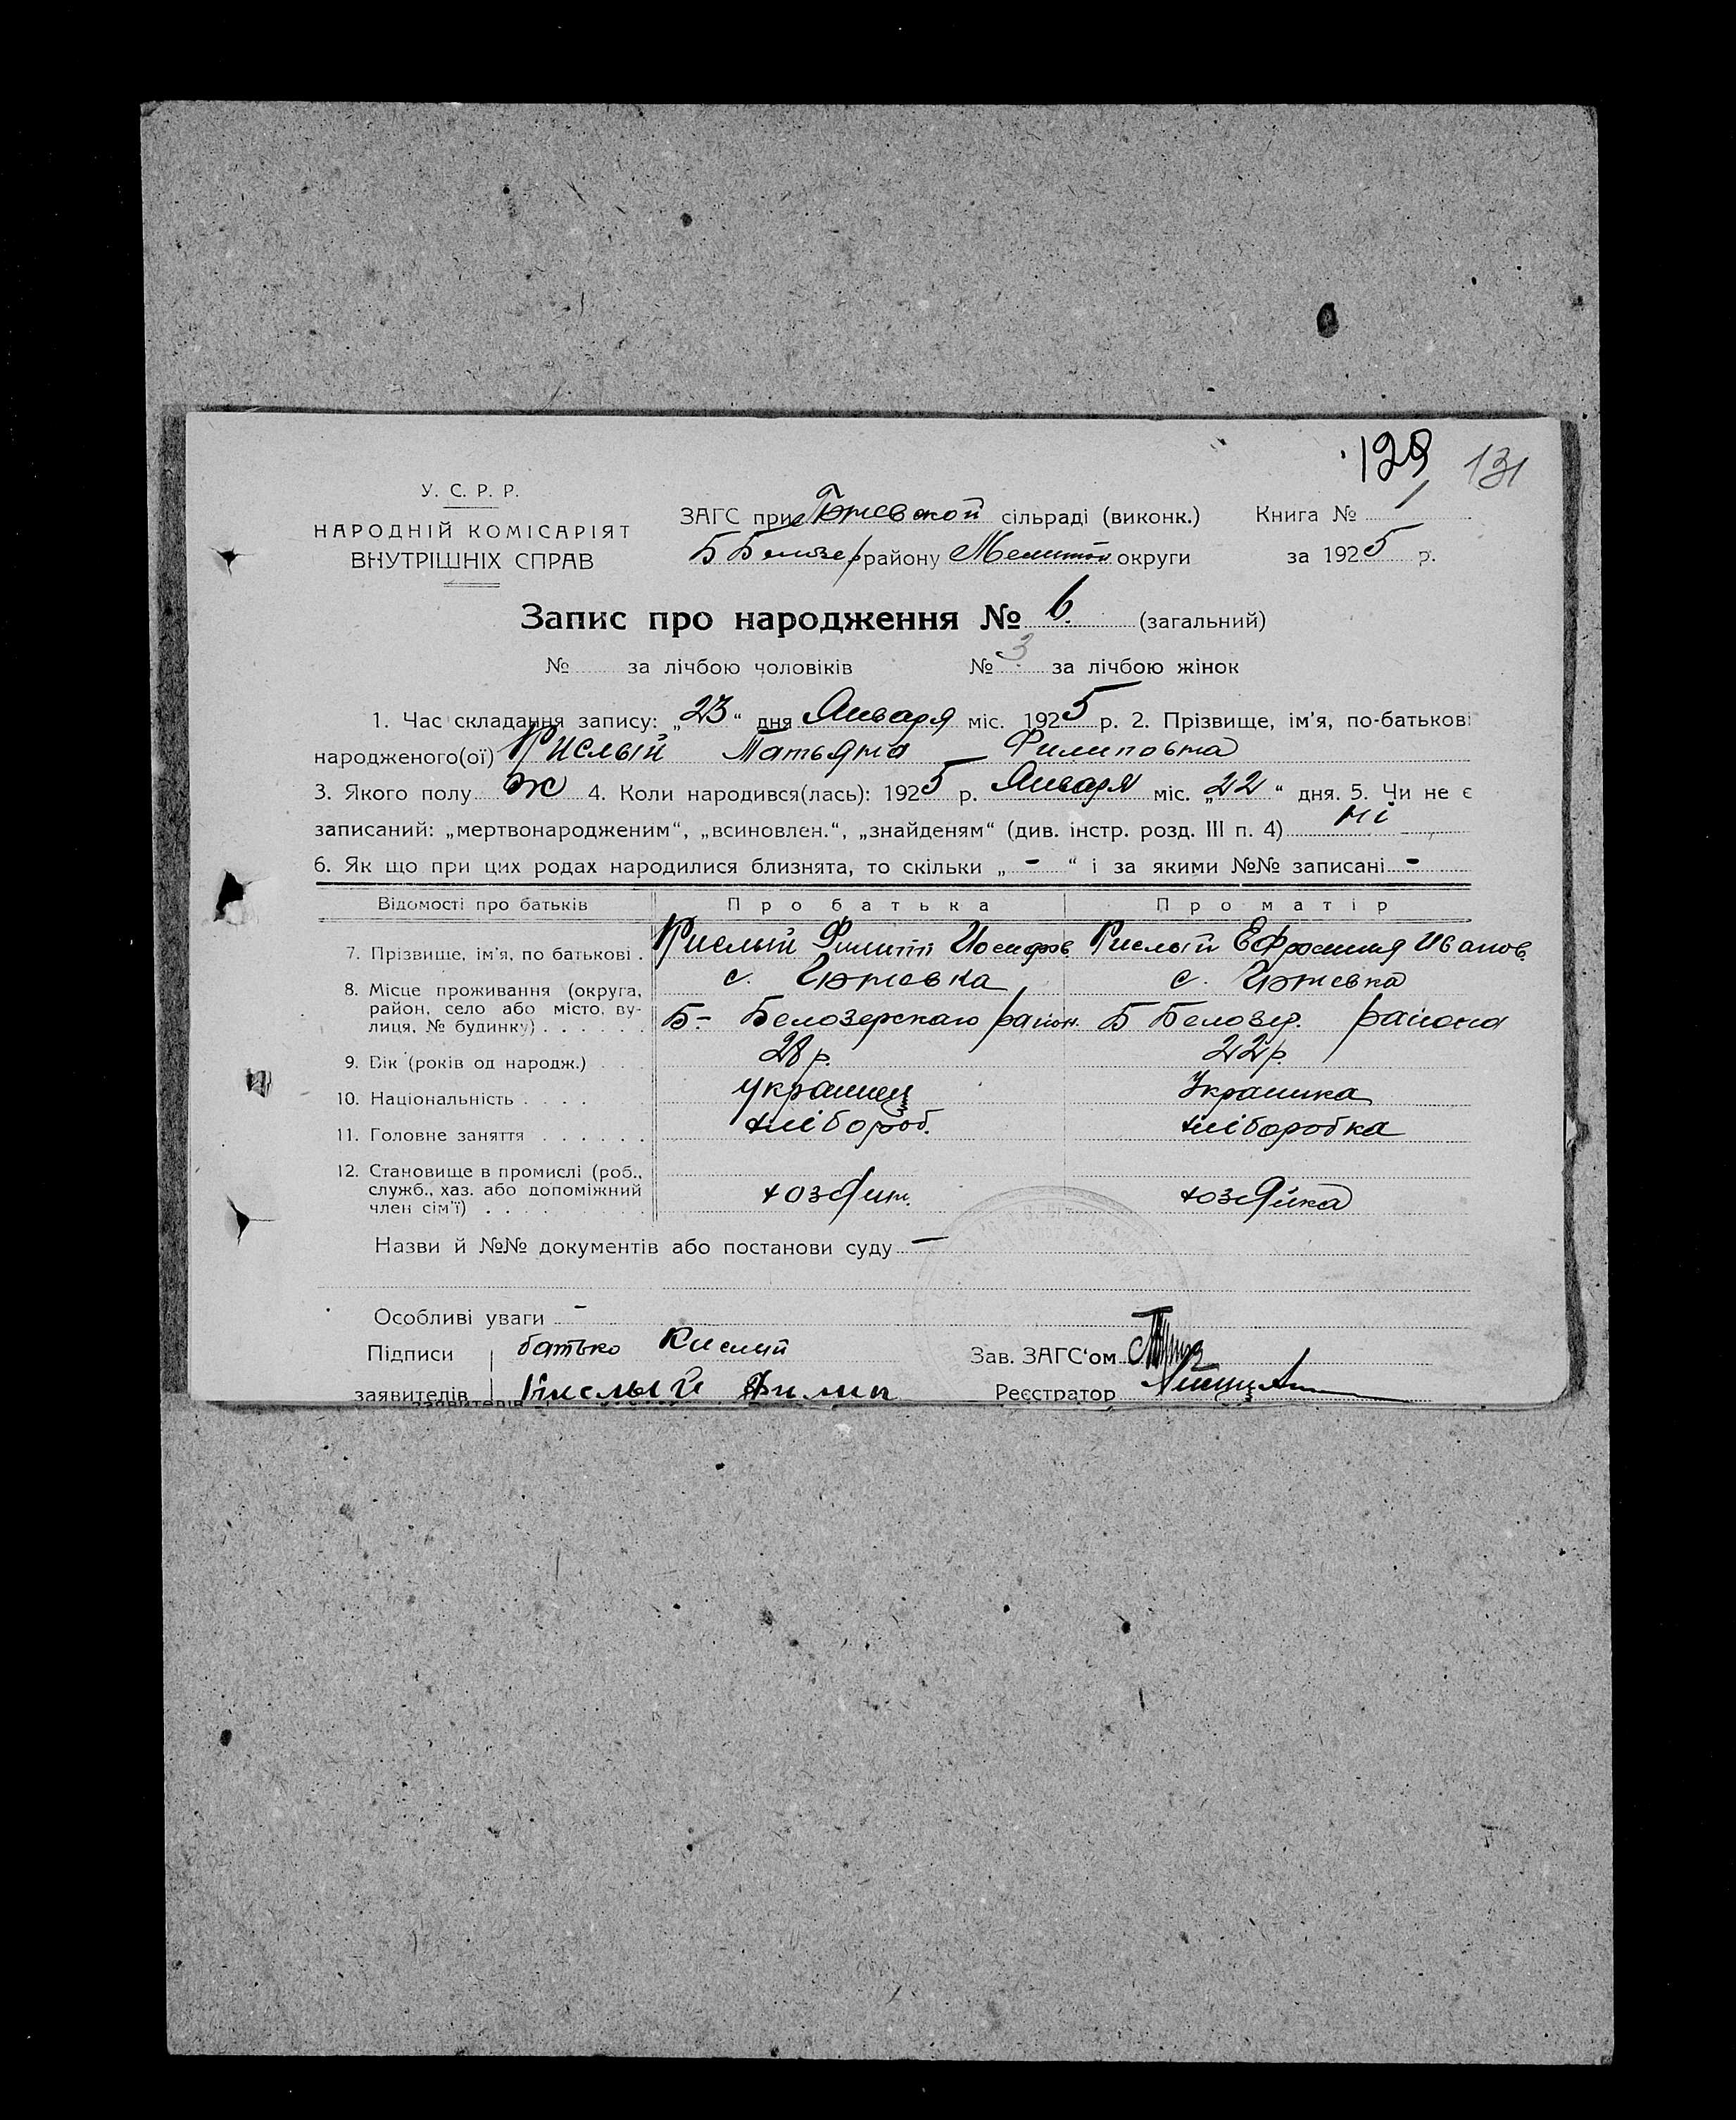 129 131
У. С. Р. Р.
НАРОДНІЙ КОМІСАРІЯТ
ВНУТРІШНІХ СПРАВ
ЗАГС при сільраді (виконк.) Книга № 1
Б Белозер району Мелитоп округи за 1925 р.
Запис про народження № 6. (загальний)
№ за лічбою чоловіків № 3 за лічбою жінок
1. Час складання запису: „23“ дня Января міс. 1925 р. 2. Прізвище, ім'я, по-батькові
народженого(ої) Кислый Татьяна Филиповна
3. Якого полу ж 4. Коли народився(лась): 1925 р. Января міс. „22“ дня. 5. Чи не є
записаний: „мертвонародженим“, „всиновлен.“, „знайденям“ (див. інстр. розд. III п. 4) ні
6. Як що при цих родах народилися близнята, то скільки „ - “ і за якими №№ записані -
Відомості про батьків Про батька Про матір
7. Прізвище, ім'я, по батькові . Кислый Филипп Иосифов Кислый Ефросиния Иванов.
8. Місце проживання (округа, с. с.
район, село або місто, ву-
лиця, № будинку) . . . . . . Б- Белозерскаго район. Б Белозер. района
9. Вік (років од народж.) . . . 28 р. 22 р.
10. Національність . . . . украинец Украинка
11. Головне заняття . . . . . . хлібороб. хліборобка
12. Становище в промислі (роб.,
служб., хаз. або допоміжний хозяин. хозяйка
член сім'ї) . . . . . . . .
Назви й №№ документів або постанови суду —
Особливі уваги -
Підписи батько Кислий Зав. ЗАГС'ом
заявителів Кислый Филип Реєстратор
заявителів